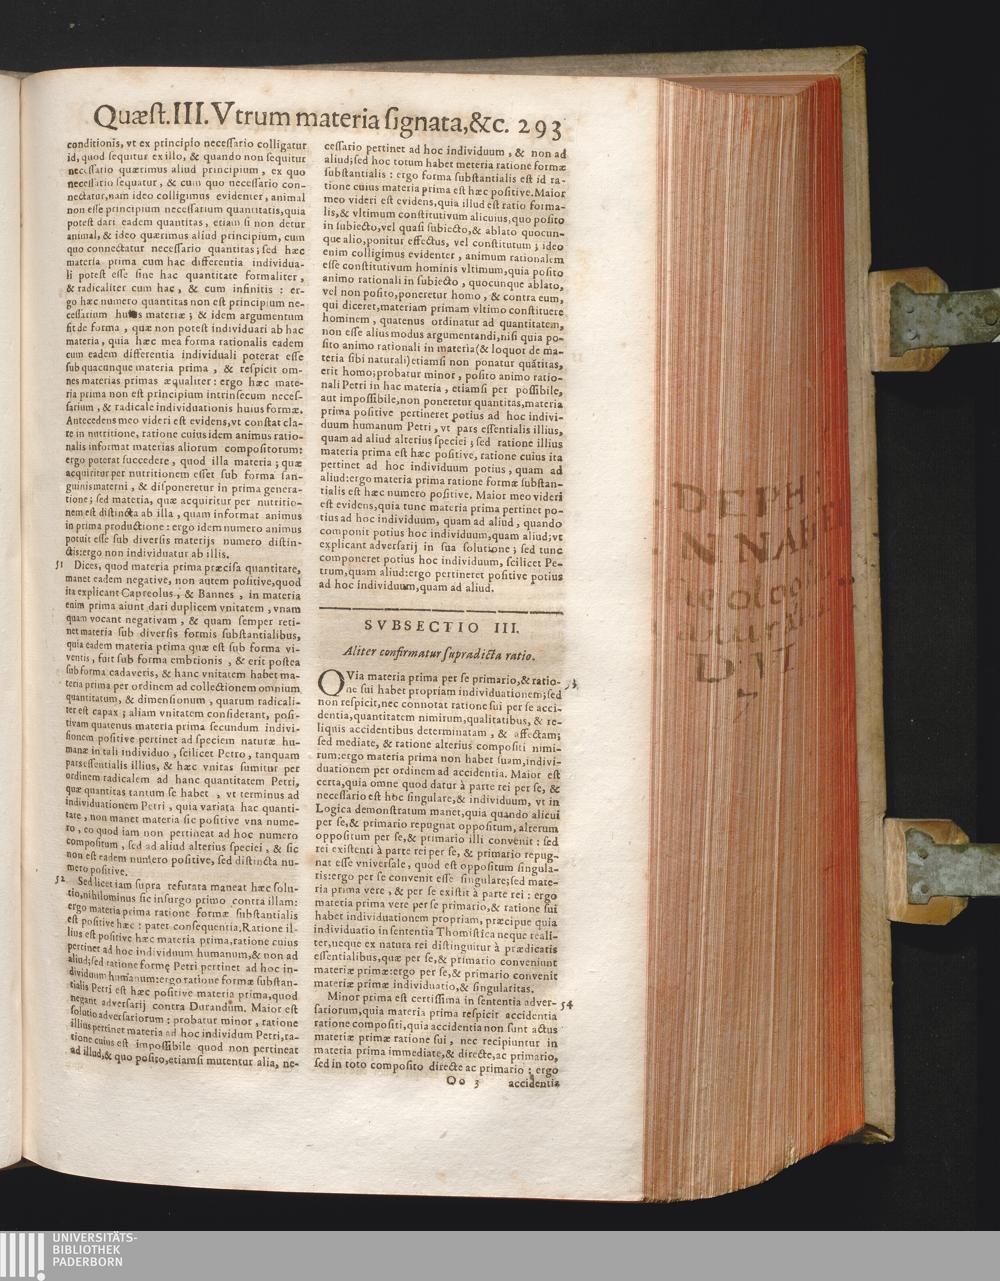 Quæſt. III. Vtrum materia ſignata, &c. 293
conditionis, vt ex principio neceſſario colligatur
id, quod ſequitur ex illo, & quando non ſequitur
neceſſario quærimus aliud principium, ex quo
neceſſario ſequatur, & cum quo neceſſario con-
nectatur, nam ideo colligimus evidenter, animal
non eſſe principium neceſſarium quantitatis, quia
poteſt dari eadem quantitas, etiam ſi non detur
animal, & ideo quærimus aliud principium, cum
quo connectatur neceſſario quantitas; ſed hæc
materia prima cum hac differentia individua-
li poteſt eſſe ſine hac quantitate formaliter,
& radicaliter cum hac, & cum infinitis : er-
go hæc numero quantitas non eſt principium ne-
ceſſarium huius materiæ; & idem argumentum
fit de forma, quæ non poteſt individuari ab hac
materia, quia hæc mea forma rationalis eadem
cum eadem differentia individuali poterat eſſe
ſub quacunque materia prima, & reſpicit om-
nes materias primas æqualiter: ergo hæc mate-
ria prima non eſt principium intrinſecum neceſ-
ſarium, & radicale individuationis huius formæ.
Antecedens meo videri eſt evidens, vt conſtat cla-
re in nutritione, ratione cuius idem animus ratio-
nalis informat materias aliorum compoſitorum:
ergo poterat ſuccedere, quod illa materia; quæ
acquiritur per nutritionem eſſet ſub forma ſan-
guinis materni, & diſponeretur in prima genera-
tione; ſed materia, quæ acquiritur per nutritio-
nem eſt diſtincta ab illa, quam informat animus
in prima productione: ergo idem numero animus
potuit eſſe ſub diverſis materijs numero diſtin-
ctis: ergo non individuatur ab illis.
51 Dices, quod materia prima præciſa quantitate,
manet eadem negative, non autem poſitive, quod
ita explicant Capreolus, & Bannes, in materia
enim prima aiunt dari duplicem vnitatem, vnam
quam vocant negativam, & quam ſemper reti-
net materia ſub diverſis formis ſubſtantialibus,
quia eadem materia prima quæ eſt ſub forma vi-
ventis, fuit ſub forma embrionis, & erit poſtea
ſub forma cadaveris, & hanc vnitatem habet ma-
teria prima per ordinem ad collectionem omnium
quantitatum, & dimenſionum, quarum radicali-
ter eſt capax; aliam vnitatem conſiderant, poſi-
tivam quatenus materia prima ſecundum indivi-
ſionem poſitive pertinet ad ſpeciem naturæ hu-
manæ in tali individuo, ſcilicet Petro, tanquam
pars eſſentialis illius, & hæc vnitas ſumitur per
ordinem radicalem ad hanc quantitatem Petri,
quæ quantitas tantum ſe habet, vt terminus ad
individuationem Petri, quia variata hac quanti-
tate, non manet materia ſic poſitive vna nume-
ro, eo quod iam non pertineat ad hoc numero
compoſitum, ſed ad aliud alterius ſpeciei, & ſic
non eſt eadem numero poſitive, ſed diſtincta nu-
mero poſitive.
52 Sed licet iam ſupra refutata maneat hæc ſolu-
tio, nihilominus ſic inſurgo primo contra illam:
ergo materia prima ratione formæ ſubſtantialis
eſt poſitive hæc : patet conſequentia. Ratione il-
lius eſt poſitive hæc materia prima, ratione cuius
pertinet ad hoc individuum humanum, & non ad
aliud; ſed ratione formę Petri pertinet ad hoc in-
dividuum humanum: ergo ratione formæ ſubſtan-
tialis Petri eſt hæc poſitive materia prima, quod
negant adverſarij contra Durandum. Maior eſt
ſolutio adverſariorum : probatur minor, ratione
illius pertinet materia ad hoc individum Petri, ra-
tione cuius eſt impoſſibile quod non pertineat
ad illud, & quo poſito, etiamſi mutentur alia, ne-
ceſſario pertinet ad hoc individuum, & non ad
aliud; ſed hoc totum habet meteria ratione formæ
ſubſtantialis : ergo forma ſubſtantialis eſt id ra-
tione cuius materia prima eſt hæc poſitive. Maior
meo videri eſt evidens, quia illud eſt ratio forma-
lis, & vltimum conſtitutivum alicuius, quo poſito
in ſubiecto, vel quaſi ſubiecto, & ablato quocun-
que alio, ponitur effectus, vel conſtitutum ; ideo
enim colligimus evidenter, animum rationalem
eſſe conſtitutivum hominis vltimum, quia poſito
animo rationali in ſubiecto, quocunque ablato,
vel non poſito, poneretur homo, & contra eum,
qui diceret, materiam primam vltimo conſtituere
hominem, quatenus ordinatur ad quantitatem,
non eſſe alius modus argumentandi, niſi quia po-
ſito animo rationali in materia (& loquor de ma-
teria ſibi naturali) etiamſi non ponatur quãtitas,
erit homo; probatur minor, poſito animo ratio-
nali Petri in hac materia, etiamſi per poſſibile,
aut impoſſibile, non poneretur quantitas, materia
prima poſitive pertineret potius ad hoc indivi-
duum humanum Petri, vt pars eſſentialis illius,
quam ad aliud alterius ſpeciei ; ſed ratione illius
materia prima eſt hæc poſitive, ratione cuius ita
pertinet ad hoc individuum potius, quam ad
aliud: ergo materia prima ratione formæ ſubſtan-
tialis eſt hæc numero poſitive. Maior meo videri
eſt evidens, quia tunc materia prima pertinet po-
tius ad hoc individuum, quam ad aliud, quando
componit potius hoc individuum, quam aliud; vt
explicant adverſarij in ſua ſolutione ; ſed tunc
componeret potius hoc individuum, ſcilicet Pe-
trum, quam aliud: ergo pertineret poſitive potius
ad hoc individuum, quam ad aliud.
SVBSECTIO III.
Aliter confirmatur ſupradicta ratio.
QVia materia prima per ſe primario, & ratio- 53
ne ſui habet propriam individuationem; ſed
non reſpicit, nec connotat ratione ſui per ſe acci-
dentia, quantitatem nimirum, qualitatibus, & re-
liquis accidentibus determinatam, & affectam;
ſed mediate, & ratione alterius compoſiti nimi-
rum: ergo materia prima non habet ſuam, indivi-
duationem per ordinem ad accidentia. Maior eſt
certa, quia omne quod datur à parte rei per ſe, &
neceſſario eſt hoc ſingulare, & individuum, vt in
Logica demonſtratum manet, quia quando alicui
per ſe, & primario repugnat oppoſitum, alterum
oppoſitum per ſe, & primario illi convenit : ſed
rei exiſtenti à parte rei per ſe, & primario repug-
nat eſſe vniverſale, quod eſt oppoſitum ſingula-
ris: ergo per ſe convenit eſſe ſingulare; ſed mate-
ria prima vere, & per ſe exiſtit à parte rei : ergo
materia prima vere per ſe primario, & ratione ſui
habet individuationem propriam, præcipue quia
individuatio in ſententia Thomiſtica neque reali-
ter, neque ex natura rei diſtinguitur à prædicatis
eſſentialibus, quæ per ſe, & primario conveniunt
materiæ primæ: ergo per ſe, & primario convenit
materiæ primæ individuatio, & ſingularitas.
Minor prima eſt certiſſima in ſententia adver- 54
ſariorum, quia materia prima reſpicit accidentia
ratione compoſiti, quia accidentia non ſunt actus
materiæ primæ ratione ſui, nec recipiuntur in
materia prima immediate, & directe, ac primario,
ſed in toto compoſito directe ac primario : ergo
Oo 3 accidentia
UNIVERSITÄTS-
BIBLIOTHEK
PADERBORN